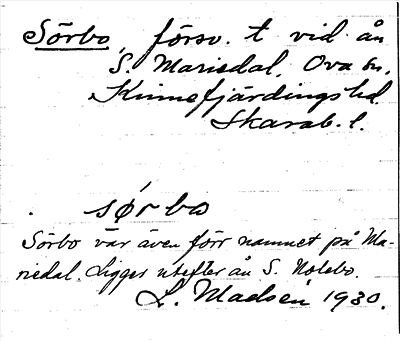 Sörbo, försv. t vid ån
S. Mariedal, Ova sn,
Kinnefjärdings hd.
Skarab. l.
sørbo
Sörbo var även förr namnet på Ma-
riedal. Ligger utefter ån S. Nolebo.
L. Madsén 1930.